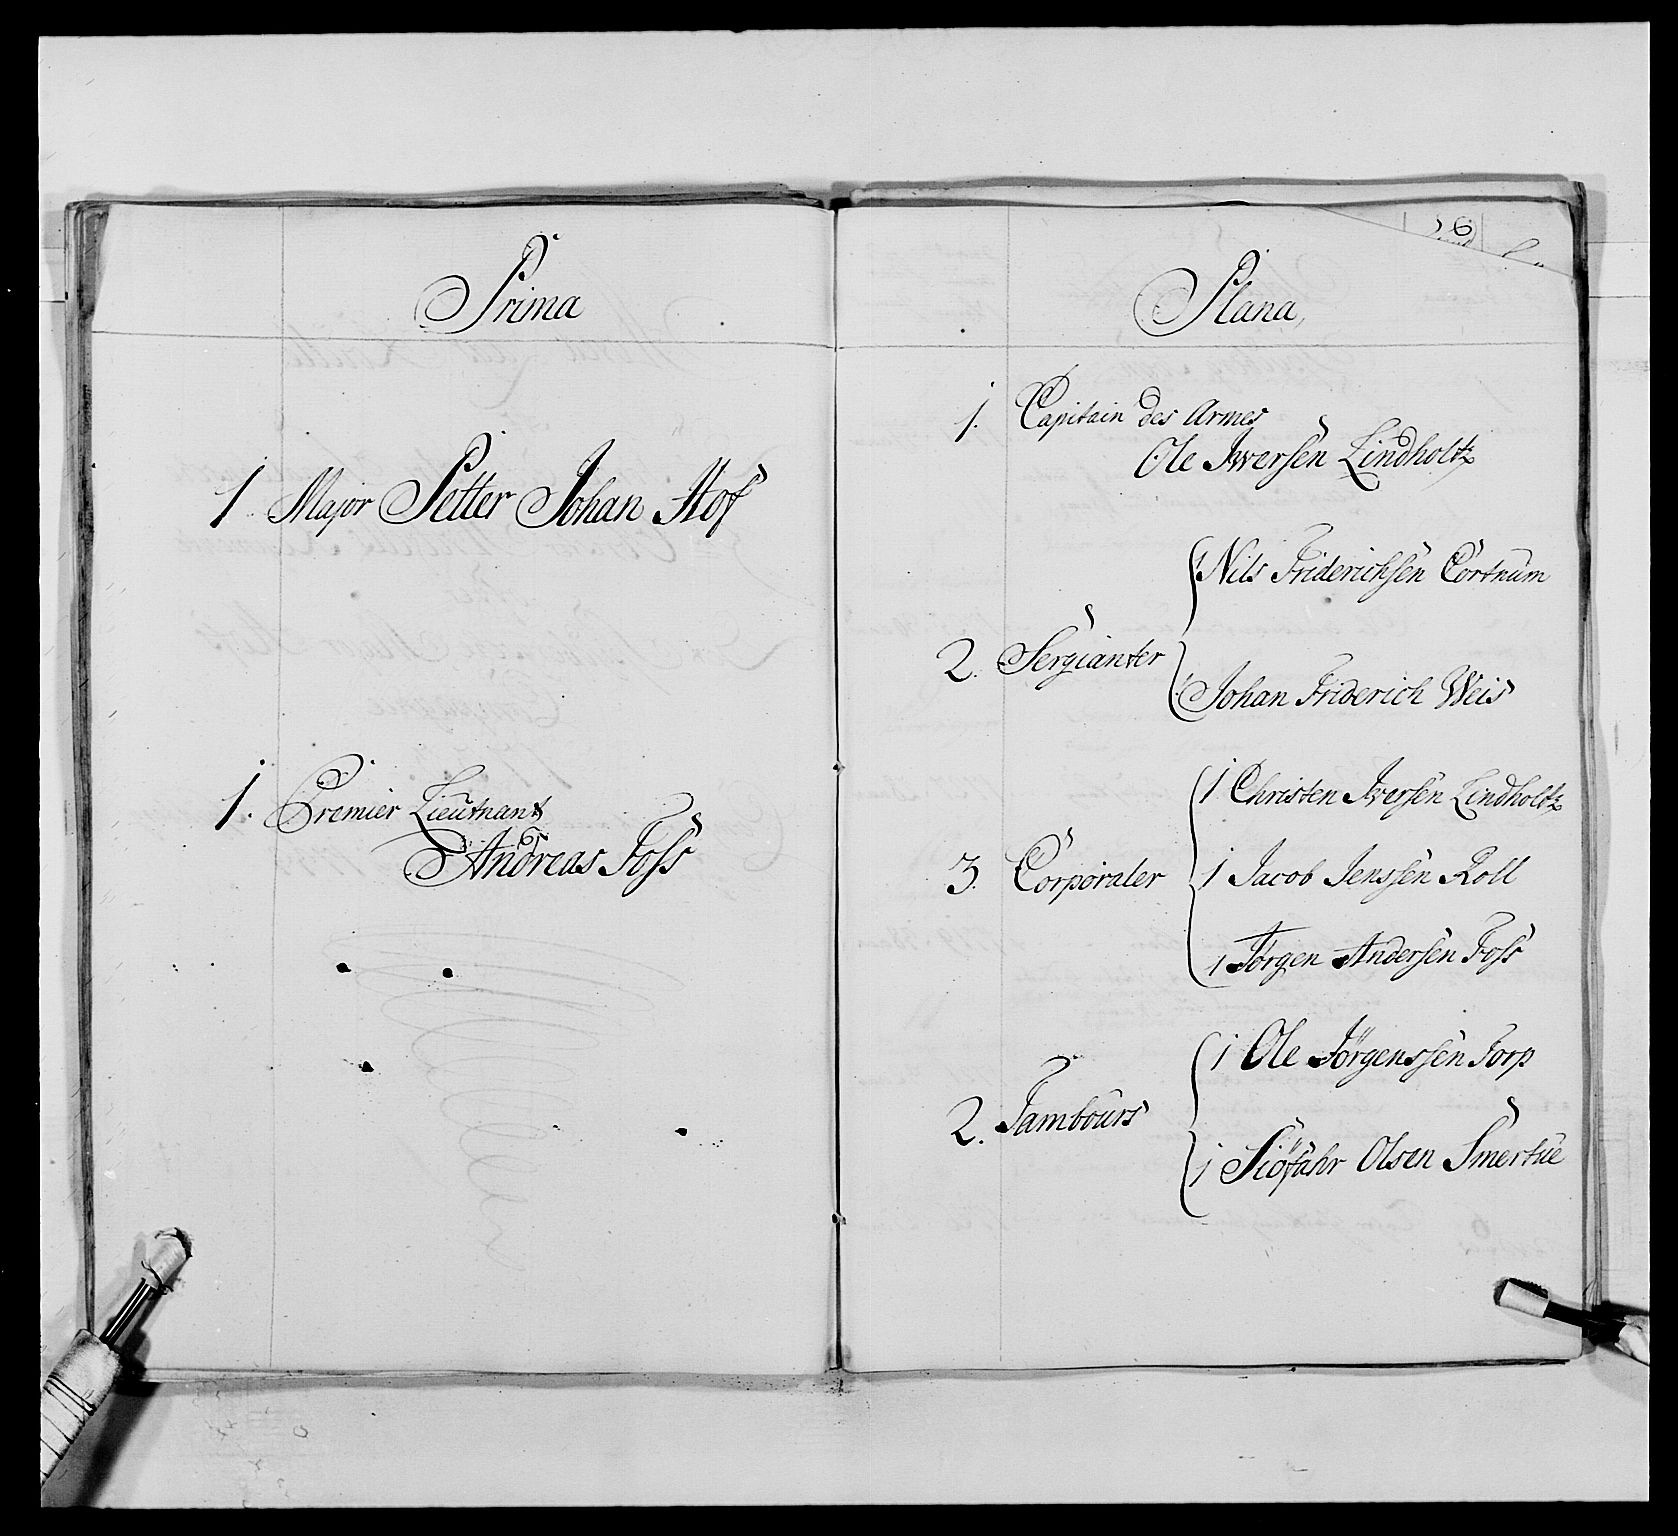 Prima
1 Major Petter Johan Hof
1. Premier Lieutnant
Andreas Foss
Plana,
1. Capitain des Armes
Ole Iversen Lindholtz
2. Sergianter
1 Nils Friderichsen Cortnum
1 Johan Friderich Weis
3. Corporaler
1 Christen Iversen Lindholtz
1 Jacob Jenssen Roll
1 Jørgen Andersen Foss
2. Tambours
1 Ole Jørgenssen Torp
1 Siøfahr Olsen Smertue